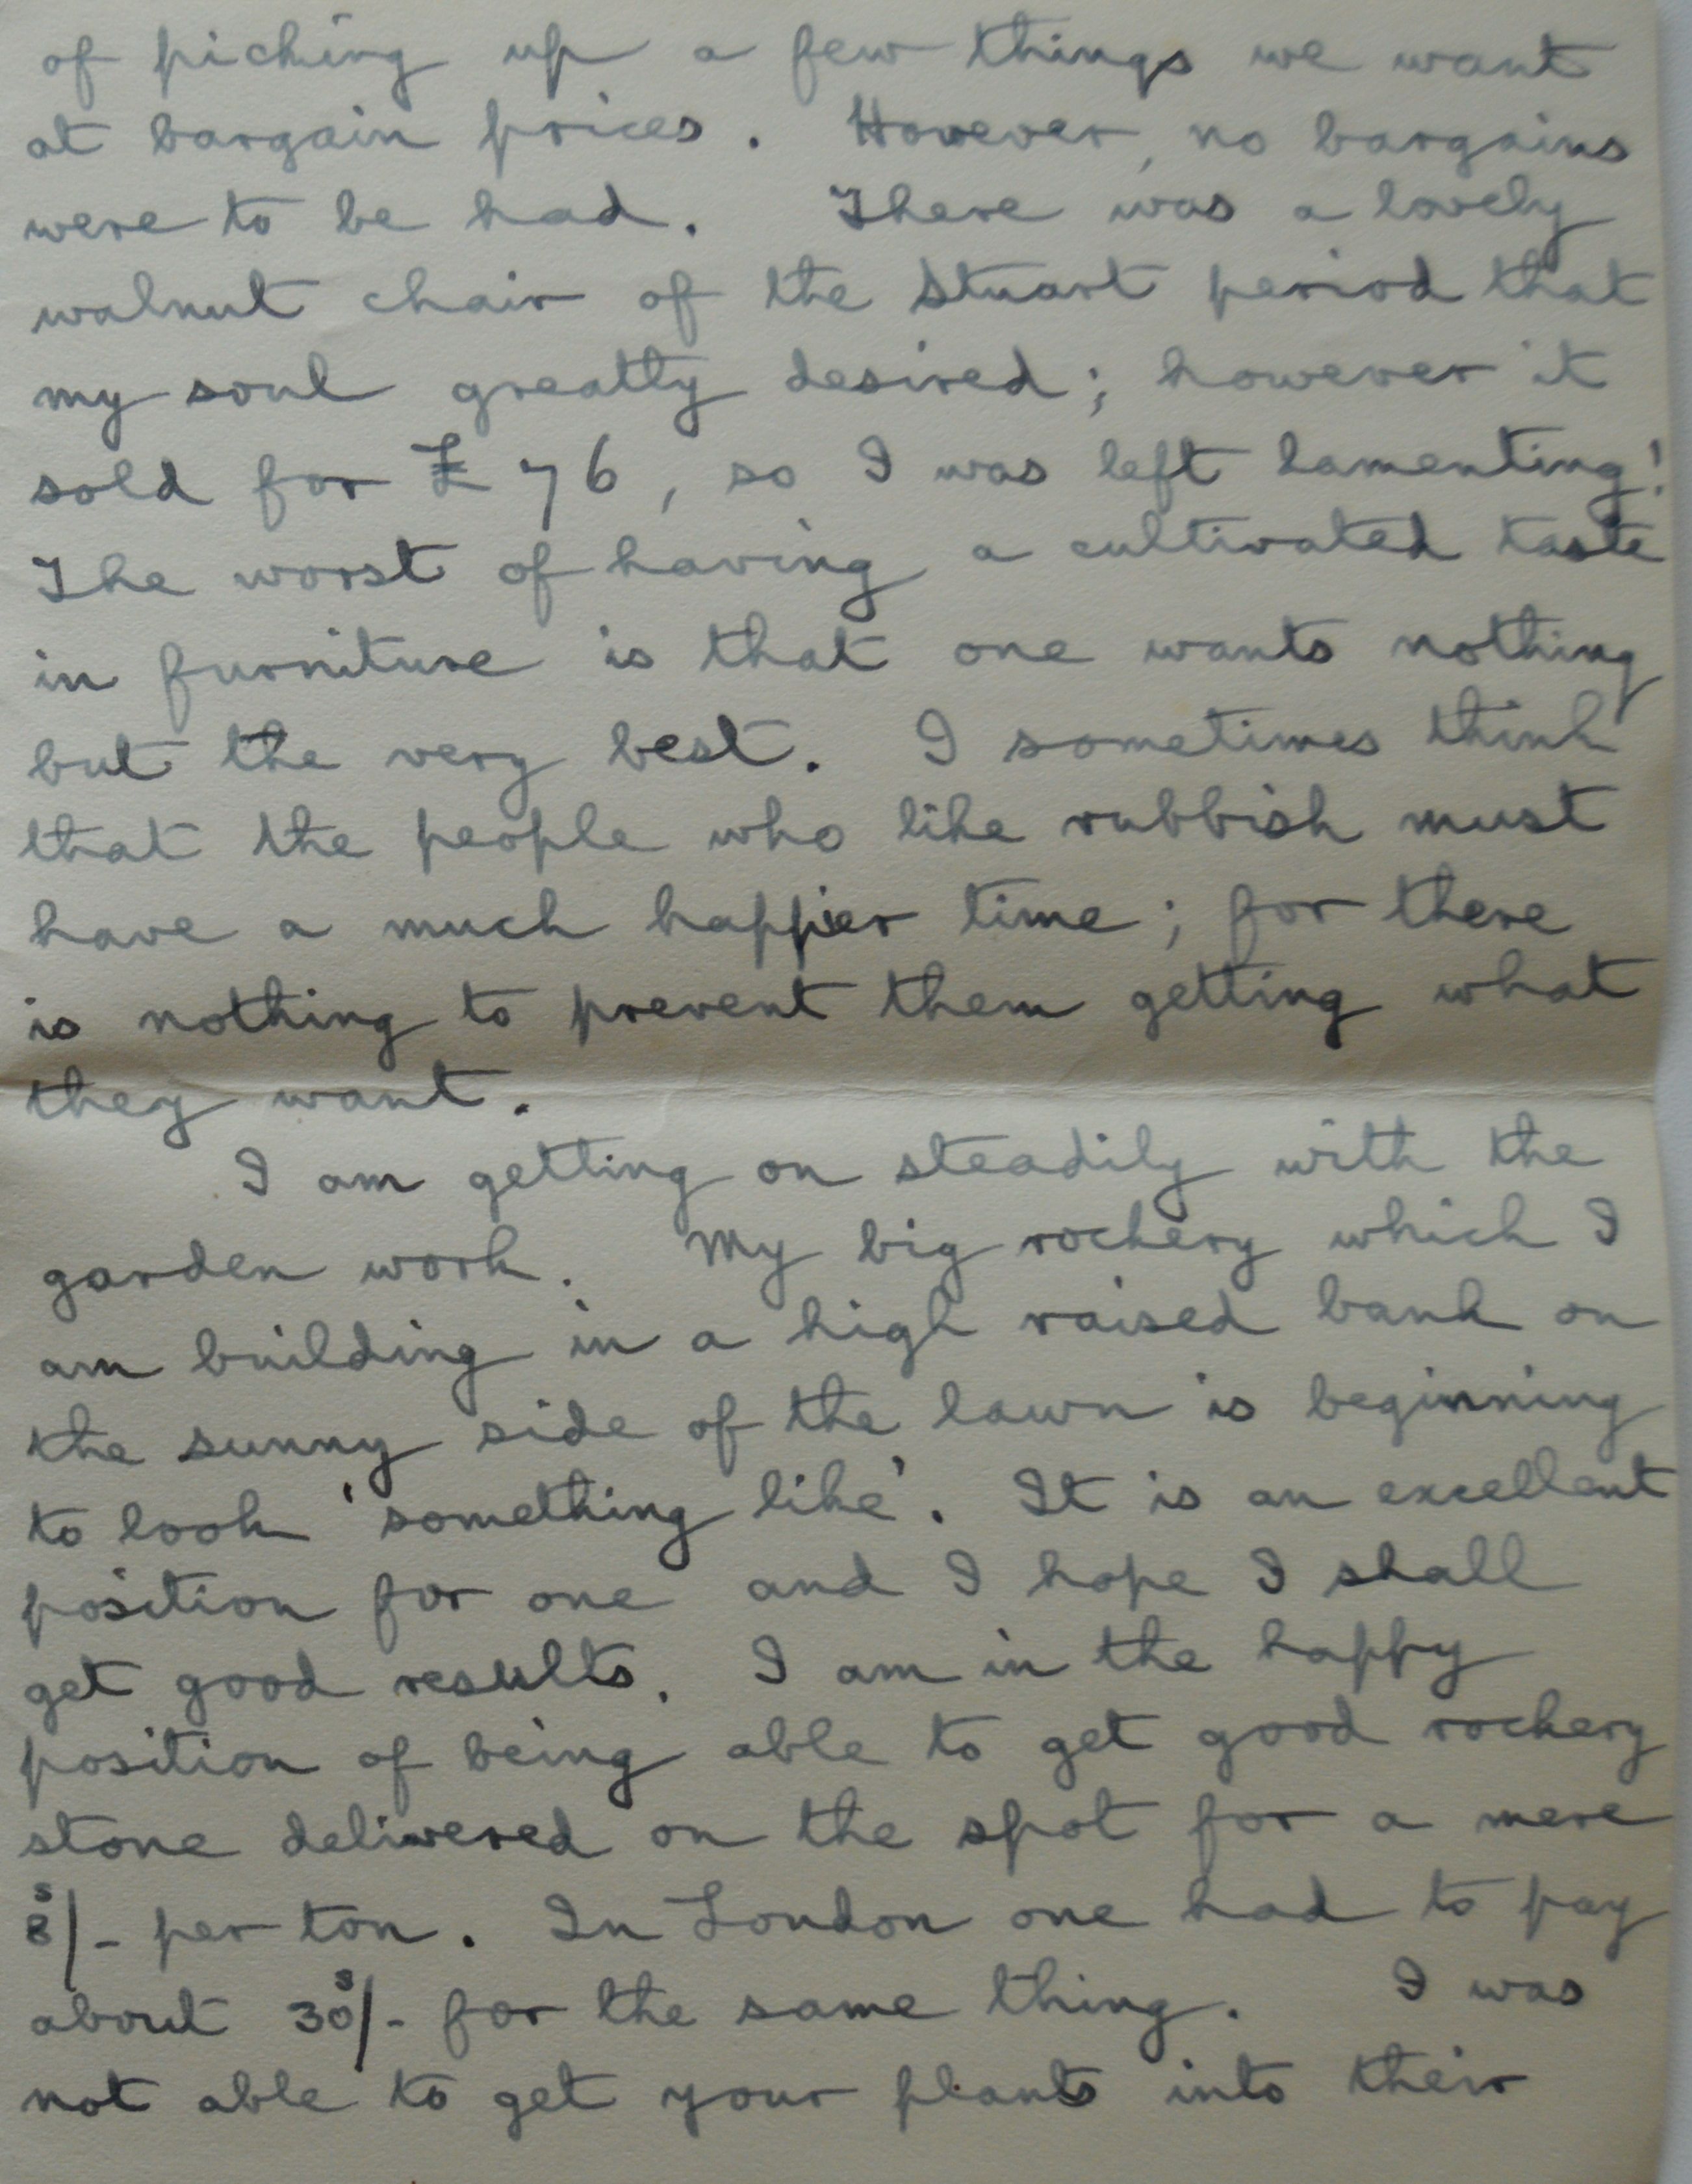 of picking up a few things we want
at bargain prices. However, no bargains
were to be had. There was a lovely
walnut chair of the Stuart period that
my soul greatly desired; however it
sold for £76, so I was left lamenting!
The worst of having a cultivated taste
in furniture is that one wants nothing
but the very best. I sometimes think
that the people who like rubbish must
have a much happier time; for there
is nothing to prevent them getting what
they want.
I am getting on steadily with the
garden work. My big rockery which I
am building in a high raised bank on
the sunny side of the lawn is beginning
to look 'something like'. It is an excellent
position for one and I hope I shall
get good results. I am in the happy
position of being able to get good rockery
stone delivered on the spot for a mere
8s/- per ton. In London one had to pay
about 30s/- for the same thing. I was
not able to get your plants into their